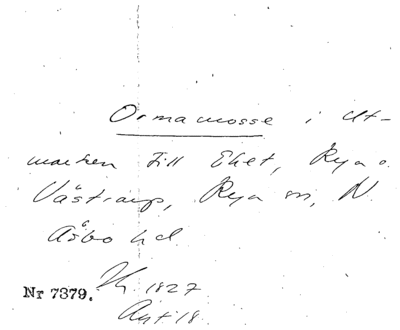 Ormamosse i ut-
marken till Eket, Rya o.
Västraup, Rya sn, N.
Åsbo hd.
1827
Nr 7379.
Akt 18.